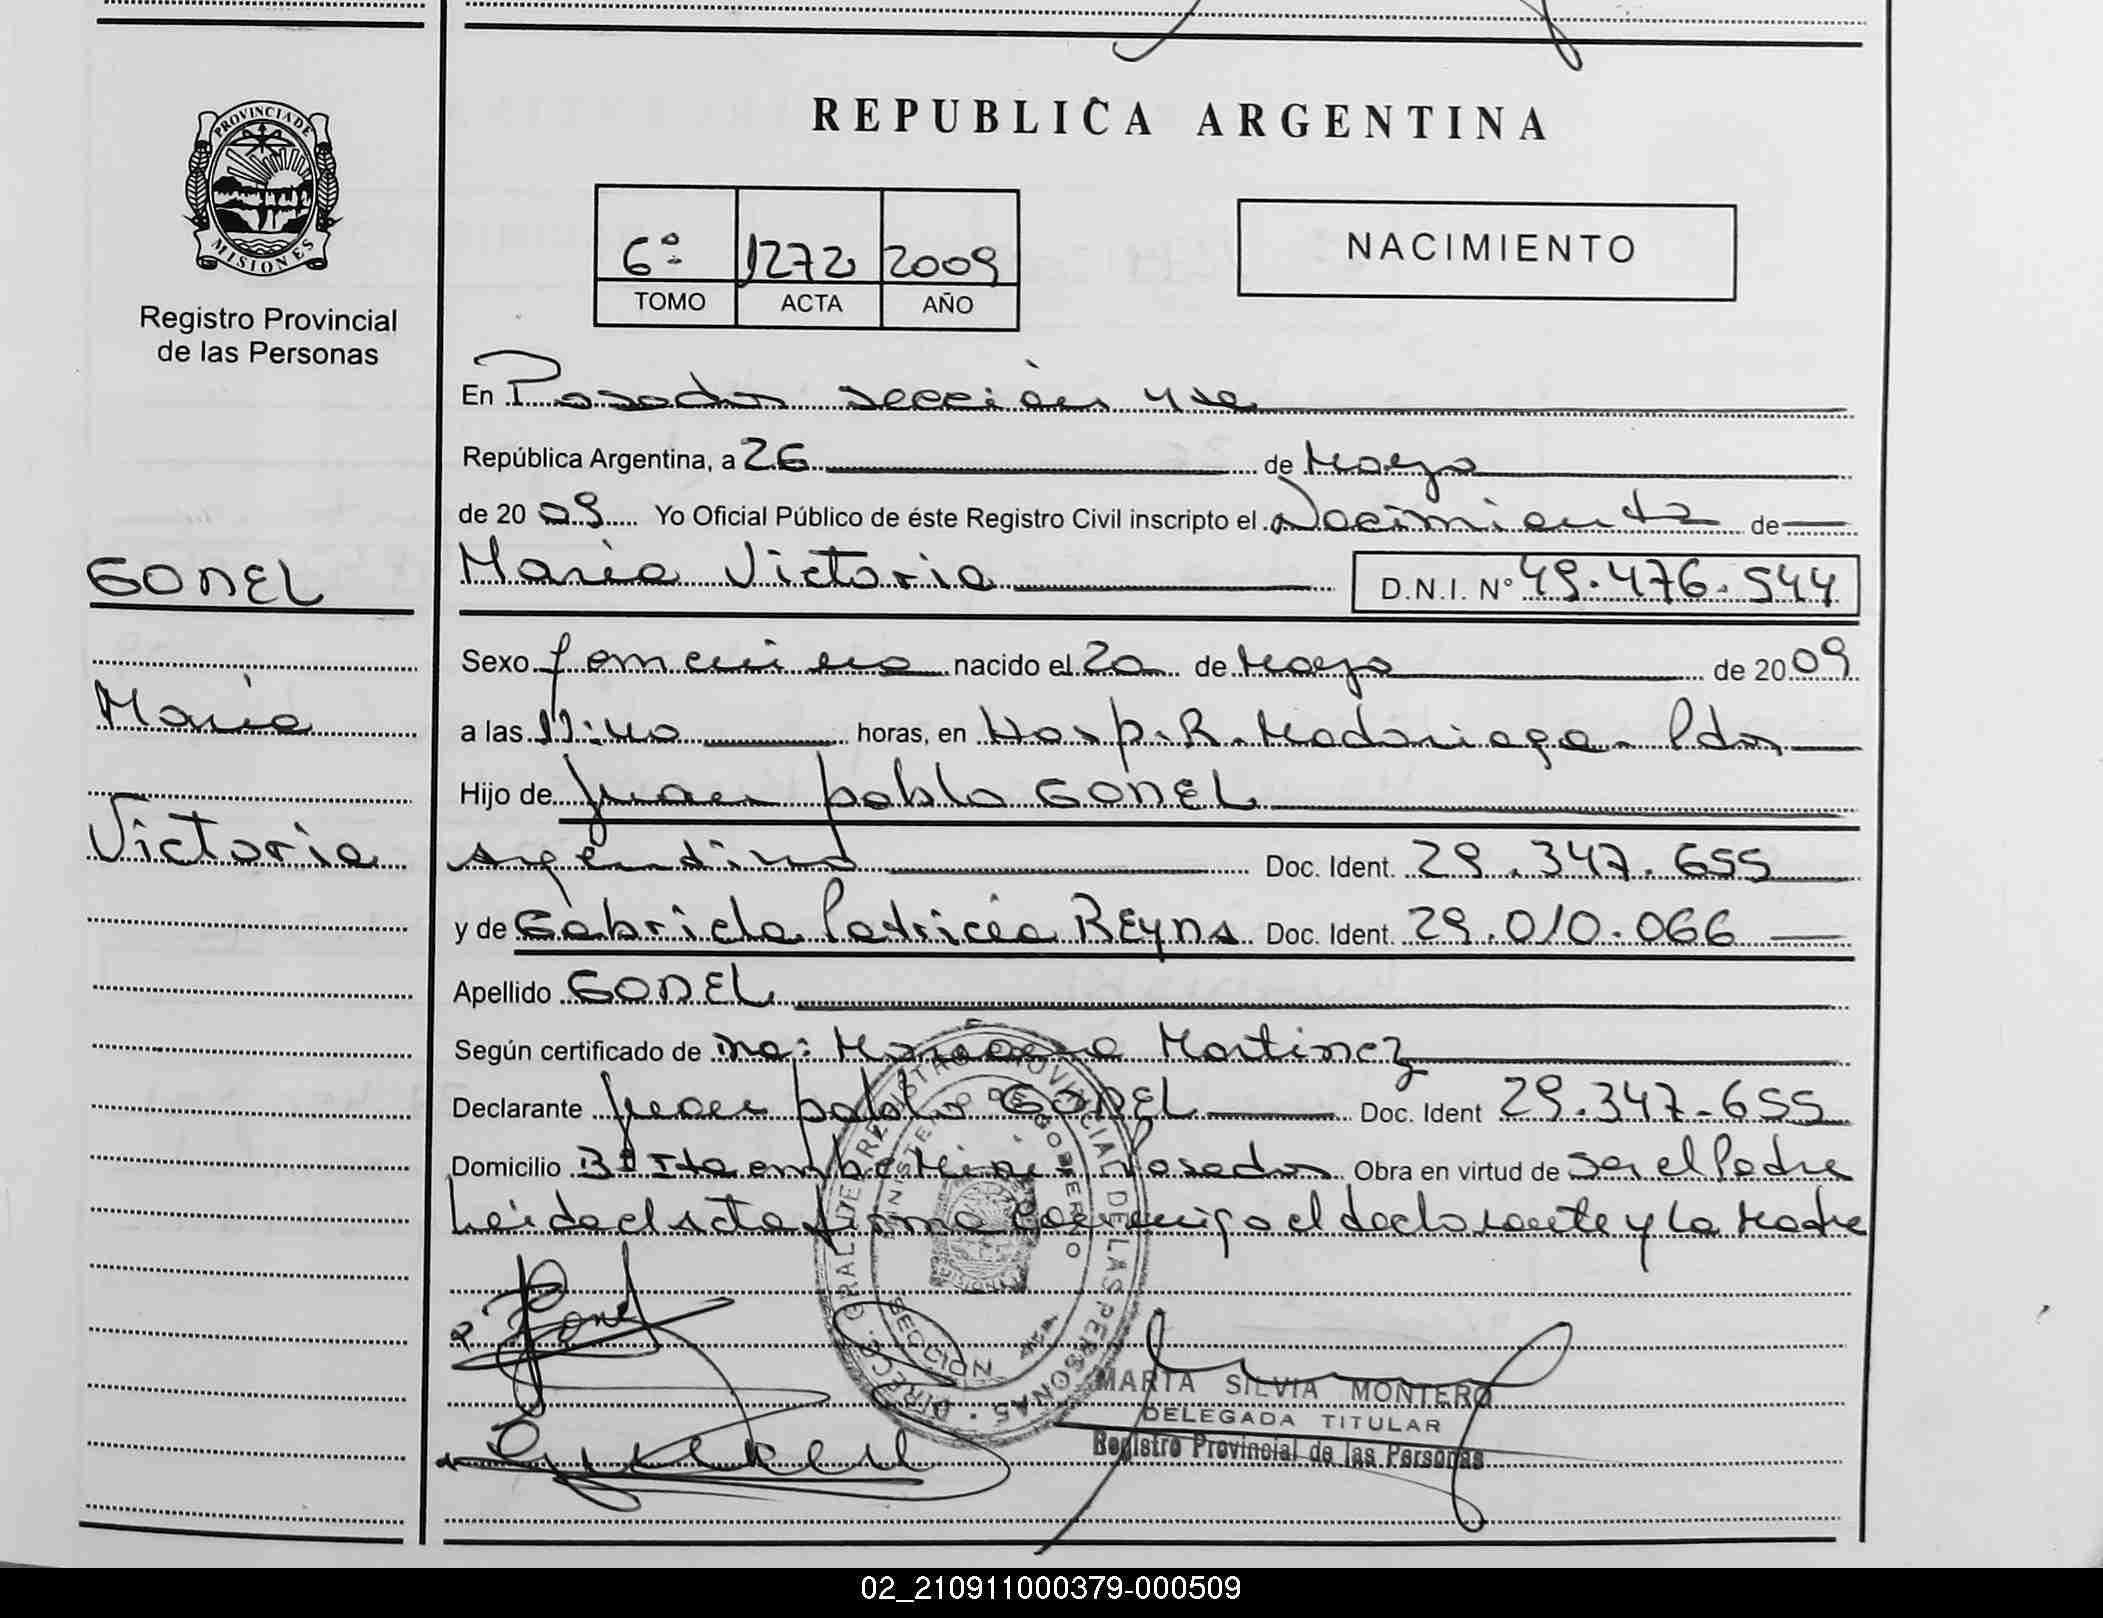 REPUBLICA ARGENTINA
PROVINCIA DE
MISIONES
Registro Provincial
de las Personas
6º 1272 2009
TOMO ACTA AÑO
NACIMIENTO
En Posadas sección 4ta
República Argentina, a 26 de Mayo
de 2009 Yo Oficial Público de éste Registro Civil inscripto el Nacimiento de
GONEL
María Victoria D.N.I. Nº 49.476.544
Sexo femenino nacido el 20 de Mayo de 2009
María
a las 11:40 horas, en Hosp. R. Madariaga - Pdas
Hijo de Juan pablo GONEL
Victoria
argentino Doc. Ident. 29.347.655
y de Gabriela Patricia REYNA Doc. Ident. 29.010.066
Apellido GONEL
Según certificado de Martinez
Declarante Juan pablo GONEL Doc. Ident 29.347.655
Domicilio Posadas Obra en virtud de ser el Padre
Leída el acta firma conmigo el declarante y la Madre
DIRECC. GRAL. DE REGISTRO PROVINCIAL DE LAS PERSONAS
MINISTERIO DE GOBIERNO
SECCION 4ta
MARTA SILVIA MONTERO
DELEGADA TITULAR
Registro Provincial de las Personas
02_210911000379-000509